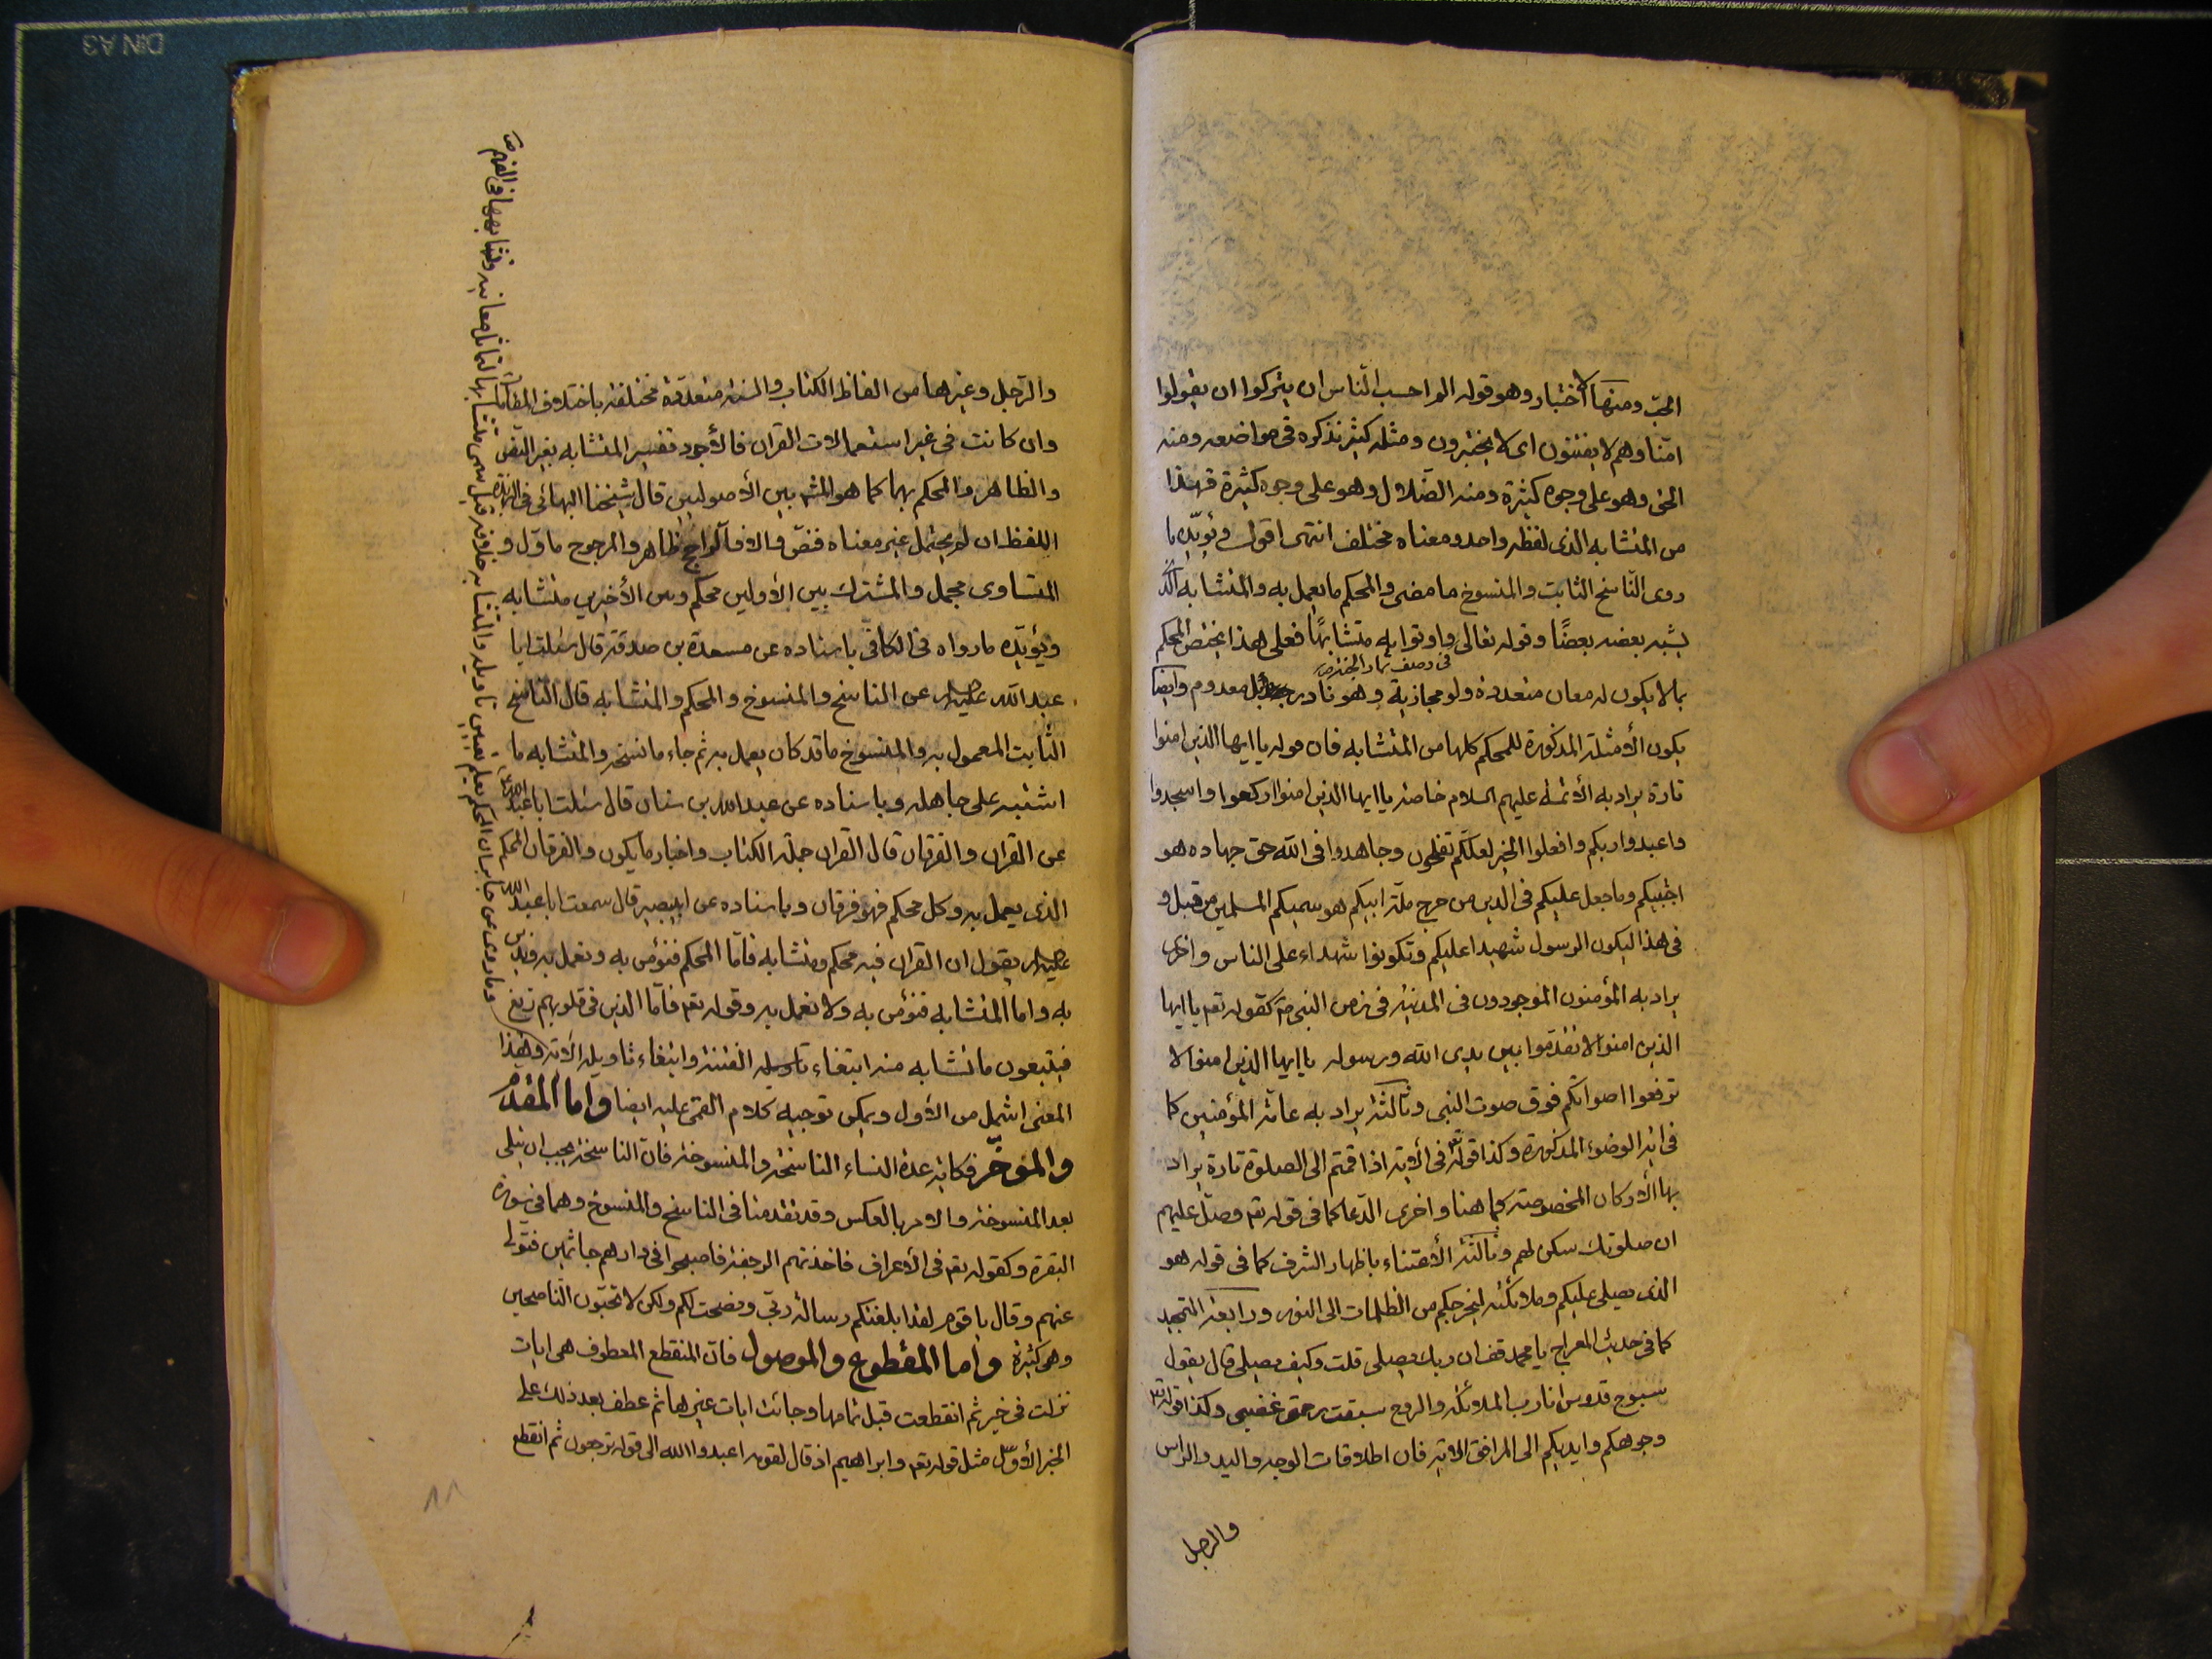 الحبّ ومنها الاختبار وهو قوله الم احسب الناس ان يتركوا ان يقولوا
امنّا وهم لا يفتنون اى لا يختبرون ومثله كثير نذكره فى مواضعه ومنه
وهو على وجوه كثيرة ومنه الضلال وهو على وجوه كثيرة فهذا
من المتشابه الذى لفظه واحد ومعناه مختلف انتهى اقول ويؤيّده ما
روى النّاسخ الثابت والمنسوخ ما مضى والمحكم ما يعمل به والمتشابه الّذى
يشبه بعضه بعضًا وقوله تعالى واوتوا به متشابهًا فعلى هذا يختص المحكم
فى وصف ثمار الجنة صح
بما لا يكون له معان متعددة ولو مجازية وهو نادر بل معدوم وايضا
يكون الأمثلة المذكورة للمحكم كلها من المتشابه فان قوله يا ايها الذين امنوا
تارة يراد به الأئمّة عليهم السلام خاصة يا ايها الذين امنوا اركعوا واسجدوا
واعبدوا ربكم وافعلوا الخير لعلّكم تفلحون وجاهدوا فى الله حق جهاده هو
اجتبيكم وما جعل عليكم فى الدين من حرج ملّة ابيكم هو سميكم المسلمين من قبل و
فى هذا ليكون الرسول شهيدا عليكم وتكونوا شهداء على الناس واخرى
يراد به المؤمنون الموجودون فى المدينة فى زمن النبى ص كقوله تعه يا ايها
الذين امنوا لا تقدّموا بين يدى الله ورسوله يا ايها الذين امنوا لا
ترفعوا اصواتكم فوق صوت النبى وثالثة يراد به عامّة المؤمنين كما
فى اية الوضوء المذكورة وكذا قوله تعه فى الأية اذا قمتم الى الصلوة تارة يراد
بها الأركان المخصوصة كما هنا واخرى الدّعا كما فى قوله تعه وصلّ عليهم
ان صلوتك سكن لهم وثالثة الأعتناء باظهار الشرف كما فى قوله هو
الذى يصلى عليكم وملائكته ليخرجكم من الظلمات الى النور ورابعة التمجيد
كما فى حديث المعراج يا محمد قف ان ربك يصلى قلت وكيف يصلى قال يقول
سبوح قدوس انا رب الملائكة والروح سبقت رحمتى غضبى وكذا قوله تعه
وجوهكم وايديكم الى المرافق الاية فان اطلاقات الوجه واليد والراس
والرجل
والرّجل وغيرها من الفاظ الكتاب والسنة متعدّدة مختلفة باختلاف المقامات
وان كانت فى غير استعمالات القرآن فالأجود تفسير المتشابه بغير النصّ
والظاهر والمحكم بهما كما هو المشـ بين الأصوليين قال شيخنا البهائى فى الزبدة
اللفظ ان لم يحتمل غير معناه فنصّ والا فالراجح ظاهر والمرجوح مأوّل و
المتساوى مجمل والمشترك بين الأولين محكم وبين الأخيرين متشابه
ويؤيّده ما رواه فى الكافى باسناده عن مسعدة بن صدقة قال سئلت ابا
عبد الله عليه السلام عن الناسخ والمنسوخ والمحكم والمتشابه قال النّاسخ
الثابت المعمول به والمنسوخ ما قد كان يعمل به ثم جاء ما نسخه والمتشابه ما
اشتبه على جاهله وباسناده عن عبد الله بن سنان قال سئلت ابا عبد الله
عن القرآن والفرقان قال القرآن جملة الكتاب واخبار ما يكون والفرقان المحكم
الذى يعمل به وكل محكم فهو فرقان وباسناده عن ابى بصير قال سمعت ابا عبد الله
عليه السلام يقول ان القرآن فيه محكم ومتشابه فأمّا المحكم فنؤمن به ونعمل به وندين
به واما المتشابه فنؤمن به ولا نعمل به وقوله تعه فأمّا الذين فى قلوبهم زيغ
فيتبعون ما تشابه منه ابتغاء الفتنة وابتغاء تأويله الاية وهذا
المعنى اشمل من الأول ويمكن توجيه كلام القمى عليه ايضا واما المقدّم
والمؤخّر فكاية عدة النساء الناسخة والمنسوخة فان الناسخة يجب ان يتلى
بعد المنسوخة والامر بالعكس وقد تقدمنا فى الناسخ والمنسوخ وهما فى سورة
البقرة وكقوله تعه فى الأعراف فاخذتهم الرجفة فاصبحوا فى دارهم جاثمين فتولى
عنهم وقال يا قوم لقد ابلغتكم رسالة ربّى ونصحت لكم ولكن لا تحبّون النّاصحين
وهى كثيرة واما المقطوع والموصول فان المنقطع المعطوف هى ايات
نزلت فى خبر ثم انقطعت قبل تمامها وجائت ايات غيرها ثم عطف بعد ذلك على
الخبر الأوّل مثل قوله تعه وابراهيم اذ قال لقومه اعبدوا الله الى قوله ترجعون ثم انقطع
وما روى عن جابر ان المحكم يعلم تعيين تاويله والمتشابه خلافه قيل سمى متشابها لتماثل معانيه وتشابهها فى الفهم صح
١١